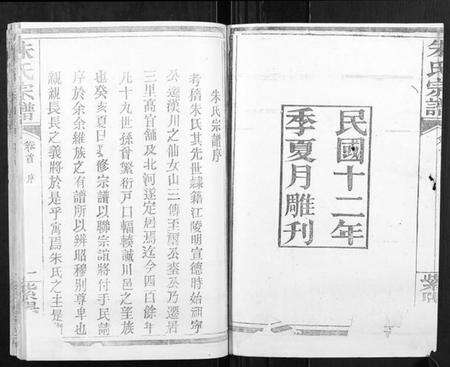 朱氏宗譜
民國十二年
季夏月雕刊
朱氏宗譜序
考隋朱氏其先世隸籍江陵明宣德時始祖宇
公遷漢川之仙女山三傳至
三里高官舖及北河遂定居焉迄今四百餘年
凡十九世孫曾繁衍戶口輻輳誠川邑之望族
也癸亥夏日 修宗譜以聯宗誼將付于民請
序於余余維族之有譜所以辨昭穆別尊卑也
親親長長之義將於是乎寓焉朱氏之主是
朱氏宗譜
卷首
序
一